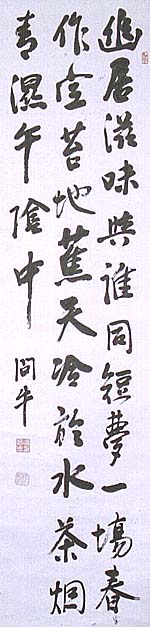 幽居滋味與誰同短夢一塲春
作空苔地蕉天冷於水茶烟
青濕午陰中 問牛